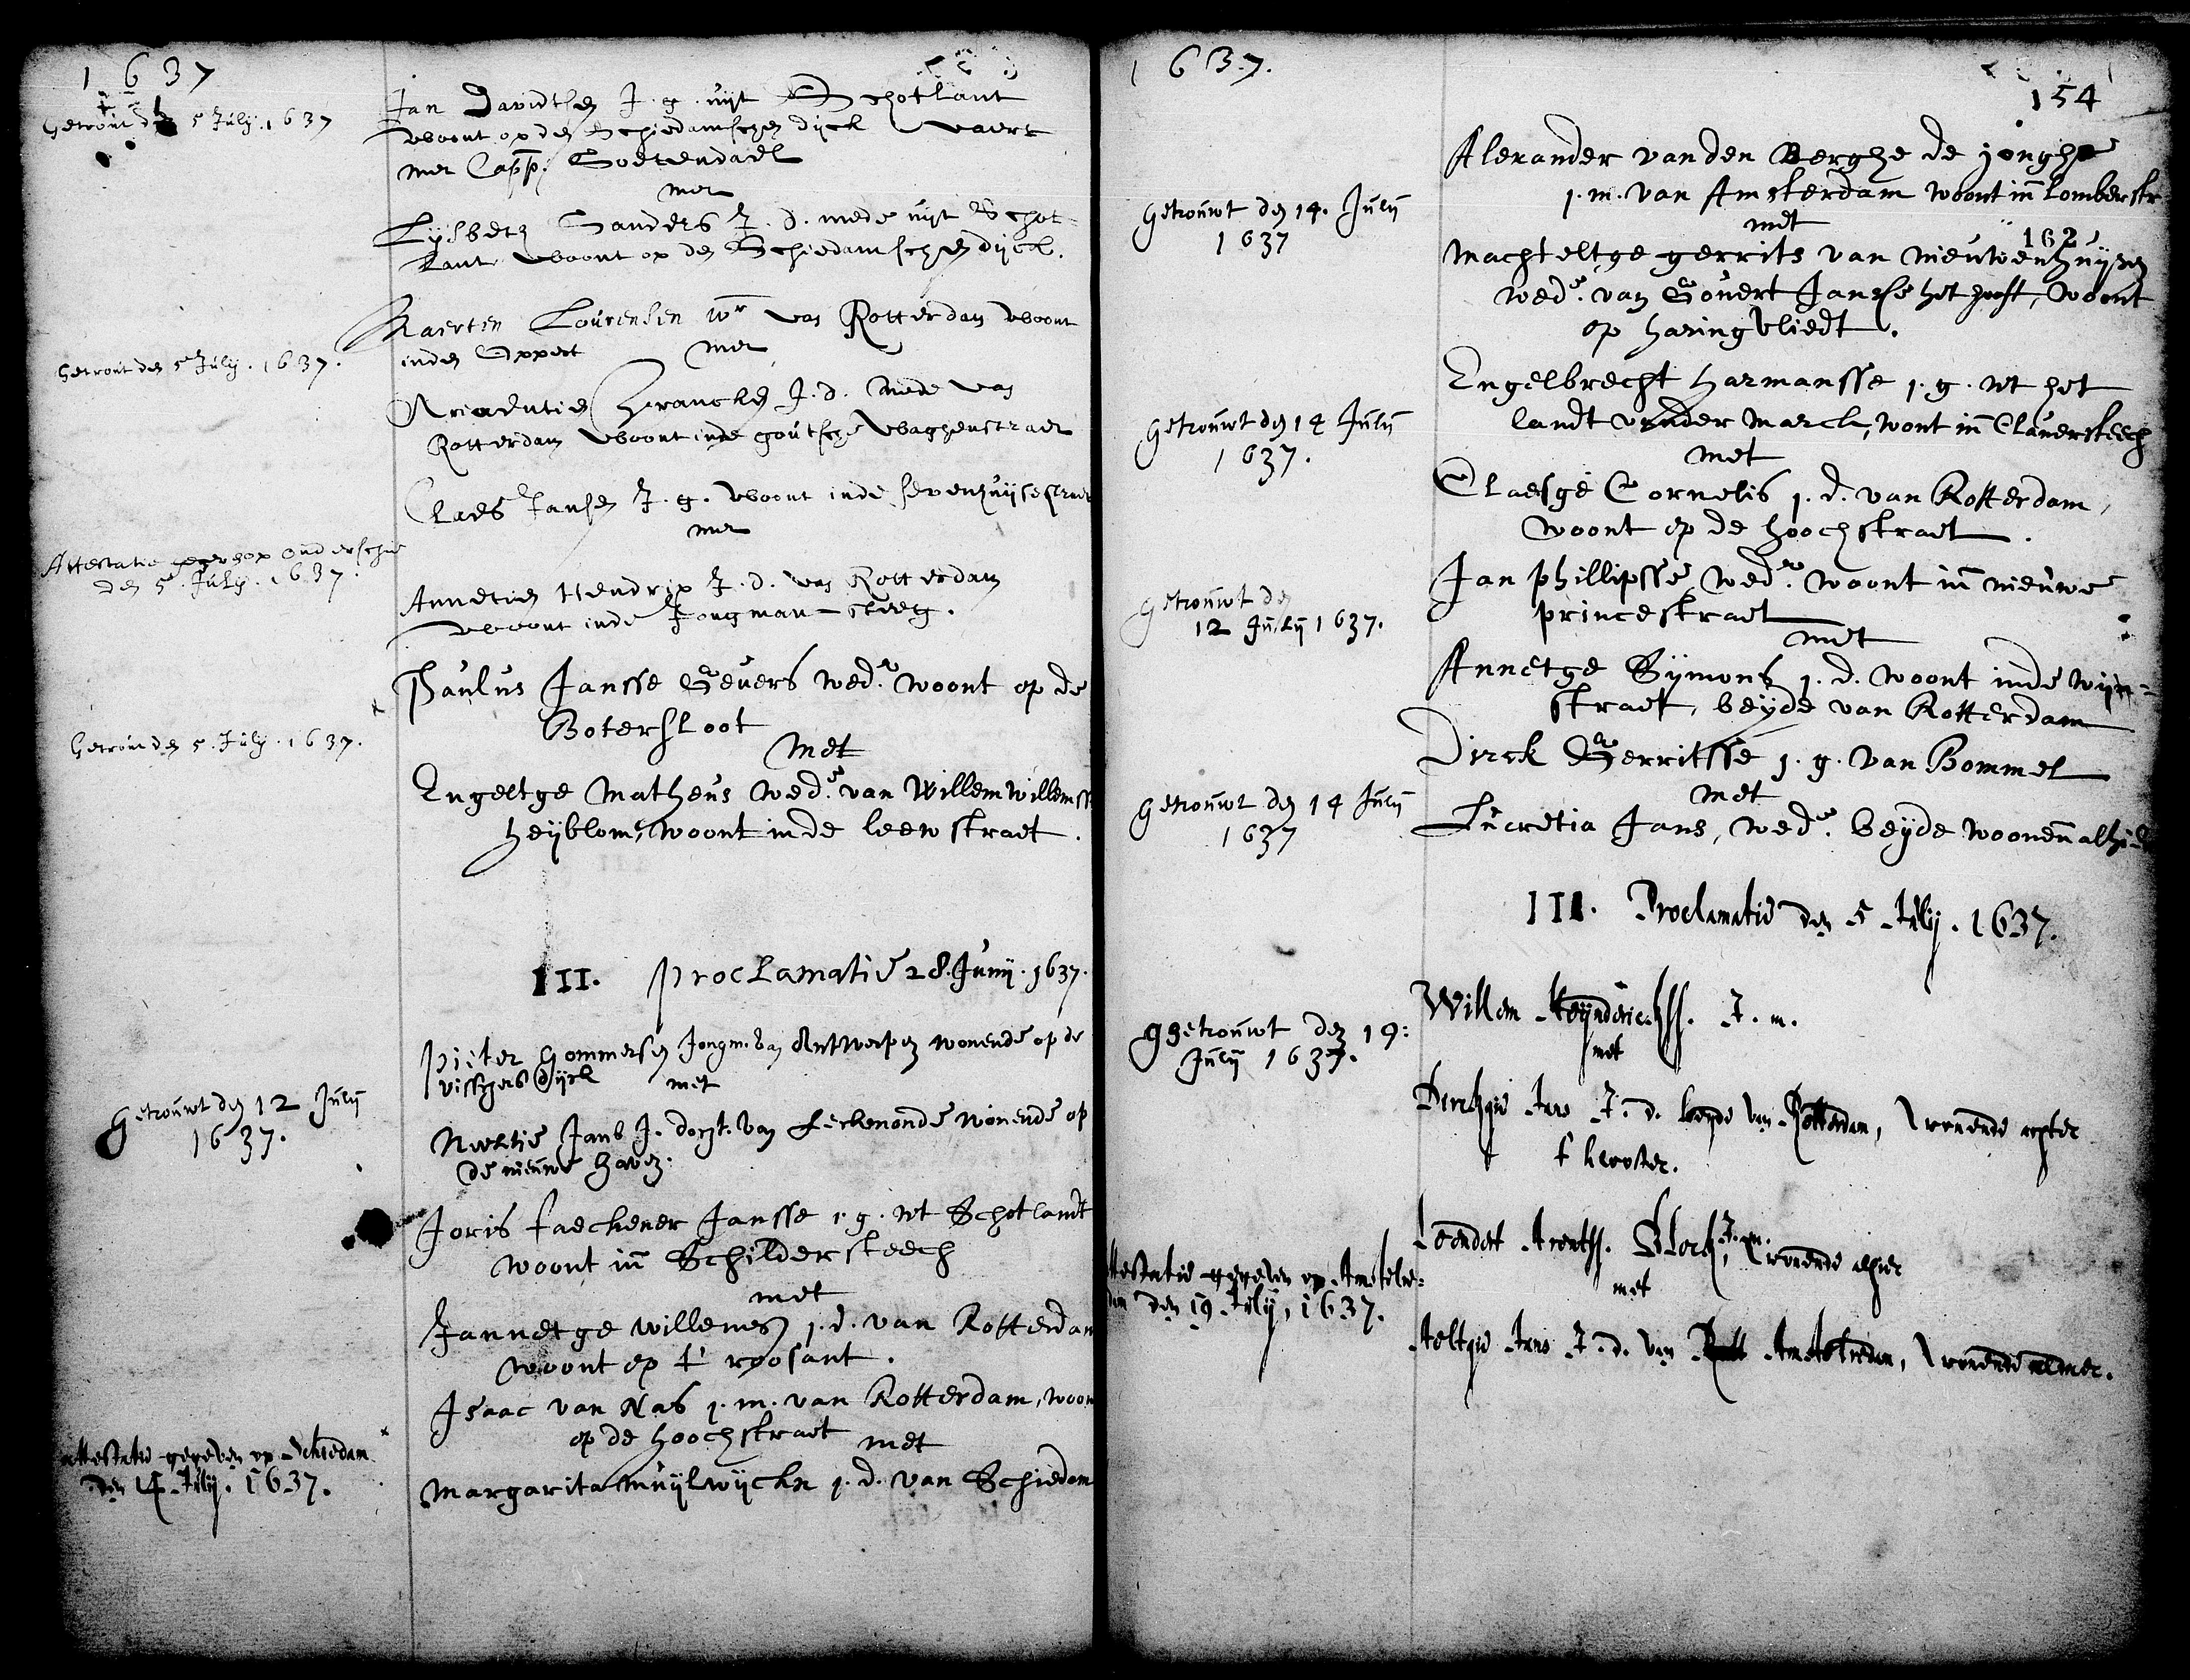 1637
Getrout den 5 July. 1637
Jan Davidtsen J. g. uyt Schotlant
woont op den Schiedamschen dijck vaert
met Capp. Goetendael
met
Lysbeth Sanders J. d. mede uyt Schot-
lant woont op den Schiedamschen dijck.
Getrout den 5 July. 1637.
Maerten Lourensen wr van Rotterdam woont
inden Oppert met
Ariaentien Francken J. d. mede van
Rotterdam woont inde goutsche Waghenstraet
Attestatie gegeven op Ouderschie
den 5. July. 1637.
Claes Jansen J. g. woont inde sevenhuysestraet
met
Annetien Hendrix J. d. van Rotterdam
woont inde Jongman-steeg.
Getrout den 5. July. 1637.
Paulus Jansse Gevers wedr. woont op de
Botersloot
Met
Engeltge Matheus wede. van Willem willemss
heyblom, woont inde leew straet.
III. proclamatie 28. Junij. 1637.
Getrouwt den 12 July
1637.
Pieter Gommersen Jongm. van Antwerpen wonende op de
visschers dijck met
Neeltie Jans J. docht. van Leckmonde wonende op
de nieuwe haven.
Joris faeckener Jansse j. g. wt Schotlandt
woont in Schildersteech
met
Jannetge willems j. d. van Rotterdam
woont op t' roosant.
attestatie gegeven op Schiedam
den 4 July. 1637.
Isaac van Nas j. m. van Rotterdam, woon
op de hoochstraet met
Margarita muylwijckx j. d. van Schiedam
1637.
154
Getrouwt den 14. July
1637
Alexander vanden Berghe de jonghe
j. m. van Amsterdam woont in Lomberstr
met
162
Machteltge gerrits van nieuwenhuysen
wede. van Govert Jansse het hooft, woont
op haringvliedt.
Getrouwt den 14 July
1637.
Engelbrecht harmansse j. g. wt het
landt vander marck, wont in Claversteech
met
Claesge Cornelis j. d. van Rotterdam,
woont op de hoochstraet.
Getrouwt den
12 July 1637.
Jan phillipsse wedr. woont in nieuwe
princestraet
met
Annetge Symons j. d. woont inde wijn-
straet, beyde van Rotterdam
Getrouwt den 14 July
1637
Dirck Gerritsse j. g. van Bommel
met
Lucretia Jans, wede. beyde woonen alhier
III. Proclamatie den 5 July. 1637.
Getrouwt den 19:
July 1637.
Willem J. m.
met
Jans J. d. beyde van Rotterdam, wonende achter
t' klooster.
attestatie gegeven op Amstelre-
dam den 19 July, 1637.
Leendert Arentss. Block, J. m. wonende alhier
met
Aeltgie Jans J. d. van Amstelredam, wonende aldaer.